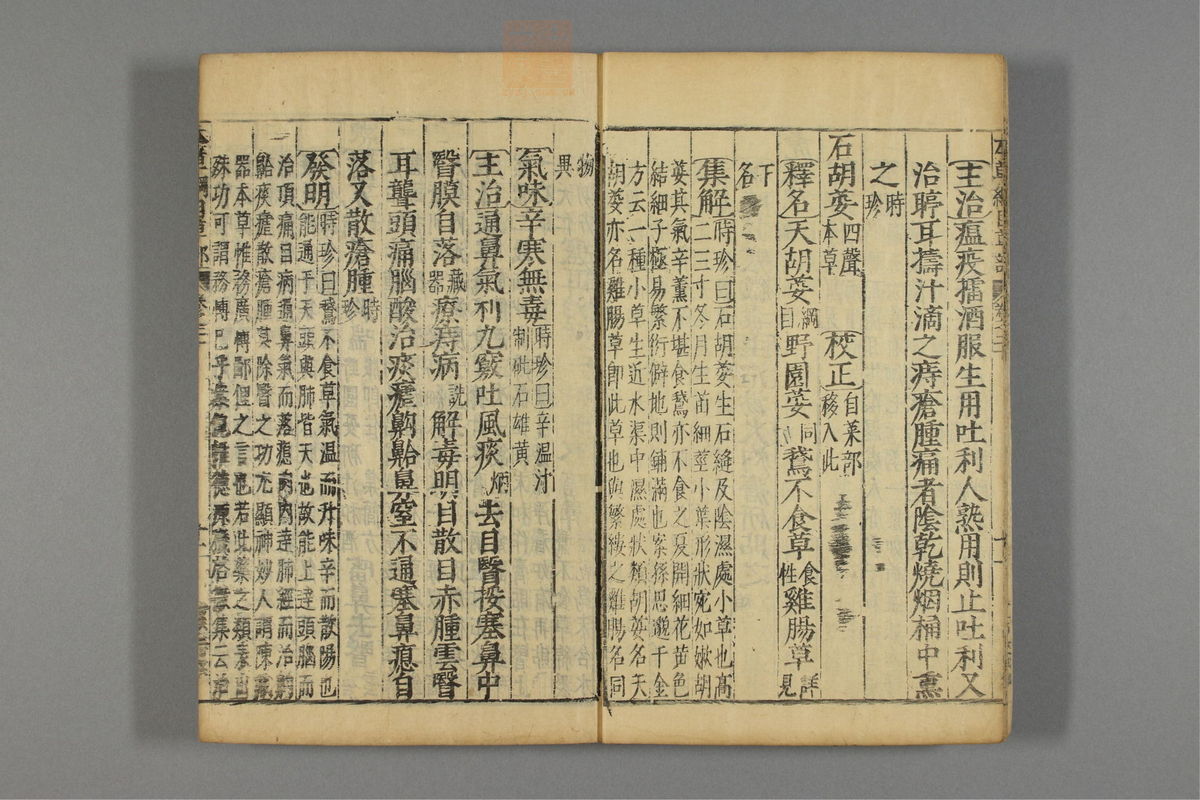 主治瘟疫擂酒服生用吐利人熟用則止吐利又
治聤耳擣汁滴之痔瘡腫痛者陰乾燒烟桶中熏
之時珍
石胡荽四聲本草 校正自菜部移入此
釋名天胡荽綱目野園荽同鵞不食草食性雞腸草詳見
下名
集解時珍曰石胡荽生石縫及陰濕處小草也高
二三寸冬月生苗細莖小葉形狀宛如嫩胡
荽其氣辛薰不堪食鵞亦不食之夏開細花黄色
結細子極易繁衍僻地則鋪滿也案孫思邈千金
方云一種小草生近水渠中濕處狀類胡荽名天
胡荽亦名雞腸草即此草也與繁縷之雞腸名同
物異
氣味辛寒無毒時珍曰辛温汁制砒石雄黄
主治通鼻氣利九竅吐風痰炳去目瞖挼塞鼻中
瞖膜自落藏器療痔病詵解毒明目散目赤腫雲瞖
耳聾頭痛腦酸治痰瘧齁䶎鼻窒不通塞鼻瘜自
落又散瘡腫時珍
發明時珍曰鵞不食草氣温而升味辛而散陽也
能通于天頭與肺皆天也故能上達頭腦而
治頂痛目病通鼻氣而落瘜肉内達肺經而治齁
䶎痰瘧散瘡腫其除瞖之功尤顯神妙人謂陳藏
器本草惟務廣博鄙俚之言也若此藥之類表出
殊功可謂務博已乎案